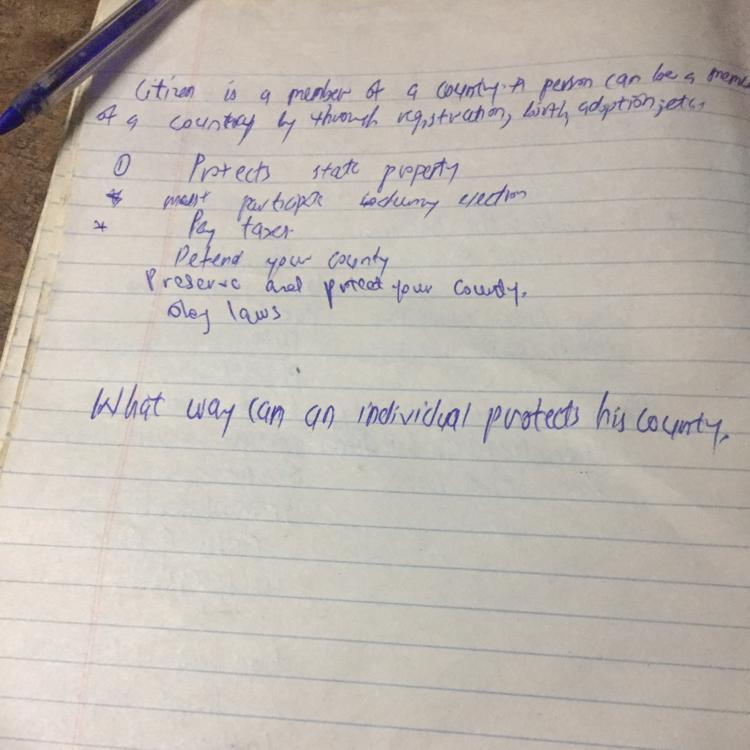 Citizen is a member of a county. A person can be a
of a country by through registration, birth, adoption, etc.
① Protects state property
* must participate election
* Pay taxes
Defend your county
Preserve and protect your county.
Obey laws
What way can an individual protects his county.